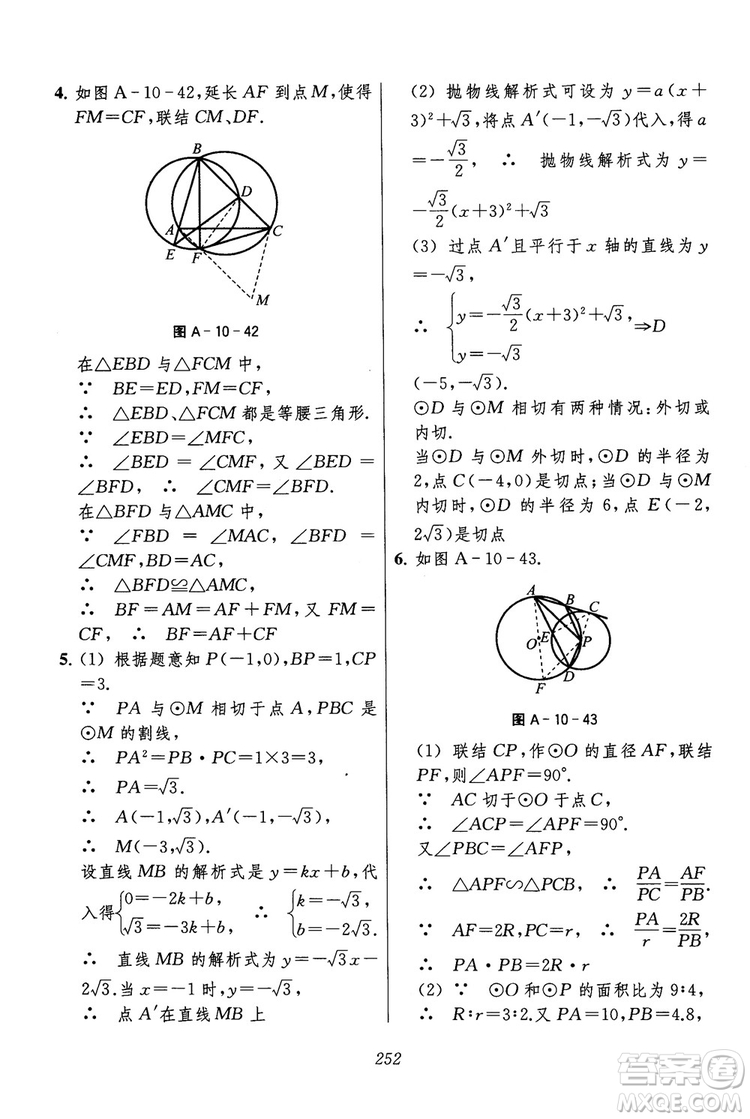 4. 如图 A-10-42,延长 AF 到点 M,使得
FM=CF,联结 CM、DF.
B
D
A
C
E
F
M
图 A-10-42
在△EBD 与△FCM 中,
∵ BE=ED,FM=CF,
∴ △EBD、△FCM 都是等腰三角形.
∵ ∠EBD=∠MFC,
∴ ∠BED = ∠CMF,又∠BED =
∠BFD, ∴ ∠CMF=∠BFD.
在△BFD 与△AMC 中,
∵ ∠FBD = ∠MAC, ∠BFD =
∠CMF,BD=AC,
∴ △BFD≌△AMC,
∴ BF=AM=AF+FM,又 FM=
CF, ∴ BF=AF+CF
5. (1) 根据题意知 P(-1,0),BP=1,CP
=3.
∵ PA 与⊙M 相切于点 A,PBC 是
⊙M 的割线,
∴ PA²=PB·PC=1×3=3.
∴ PA=√3.
∴ A(-1,√3),A′(-1,-√3).
∴ M(-3,√3).
设直线 MB 的解析式是 y=kx+b,代
入得{0=-2k+b, √3=-3k+b, ∴ {k=-√3, b=-2√3.
∴ 直线 MB 的解析式为 y=-√3x-
2√3.当 x=-1 时,y=-√3,
∴ 点 A′在直线 MB 上
(2) 抛物线解析式可设为 y=a(x+
3)²+√3,将点 A′(-1,-√3)代入,得 a
=-√3/2, ∴ 抛物线解析式为 y=
-√3/2(x+3)²+√3
(3) 过点 A′且平行于 x 轴的直线为 y
=-√3,
∴ {y=-√3/2(x+3)²+√3, y=-√3 ⇒D
(-5,-√3).
⊙D 与⊙M 相切有两种情况:外切或
内切.
当⊙D 与⊙M 外切时,⊙D 的半径为
2,点 C(-4,0)是切点;当⊙D 与⊙M
内切时,⊙D 的半径为 6,点 E(-2,
2√3)是切点
6. 如图 A-10-43.
A
B
C
O
E
P
D
F
图 A-10-43
(1) 联结 CP,作⊙O 的直径 AF,联结
PF,则∠APF=90°.
∵ AC 切于⊙O 于点 C,
∴ ∠ACP=∠APF=90°.
又∠PBC=∠AFP,
∴ △APF∽△PCB, ∴ PA/PC=AF/PB.
∵ AF=2R,PC=r, ∴ PA/r=2R/PB,
∴ PA·PB=2Rr
(2) ∵ ⊙O 和⊙P 的面积比为 9:4,
∴ R:r=3:2.又 PA=10,PB=4.8,
252
答案圈
MXQE.COM